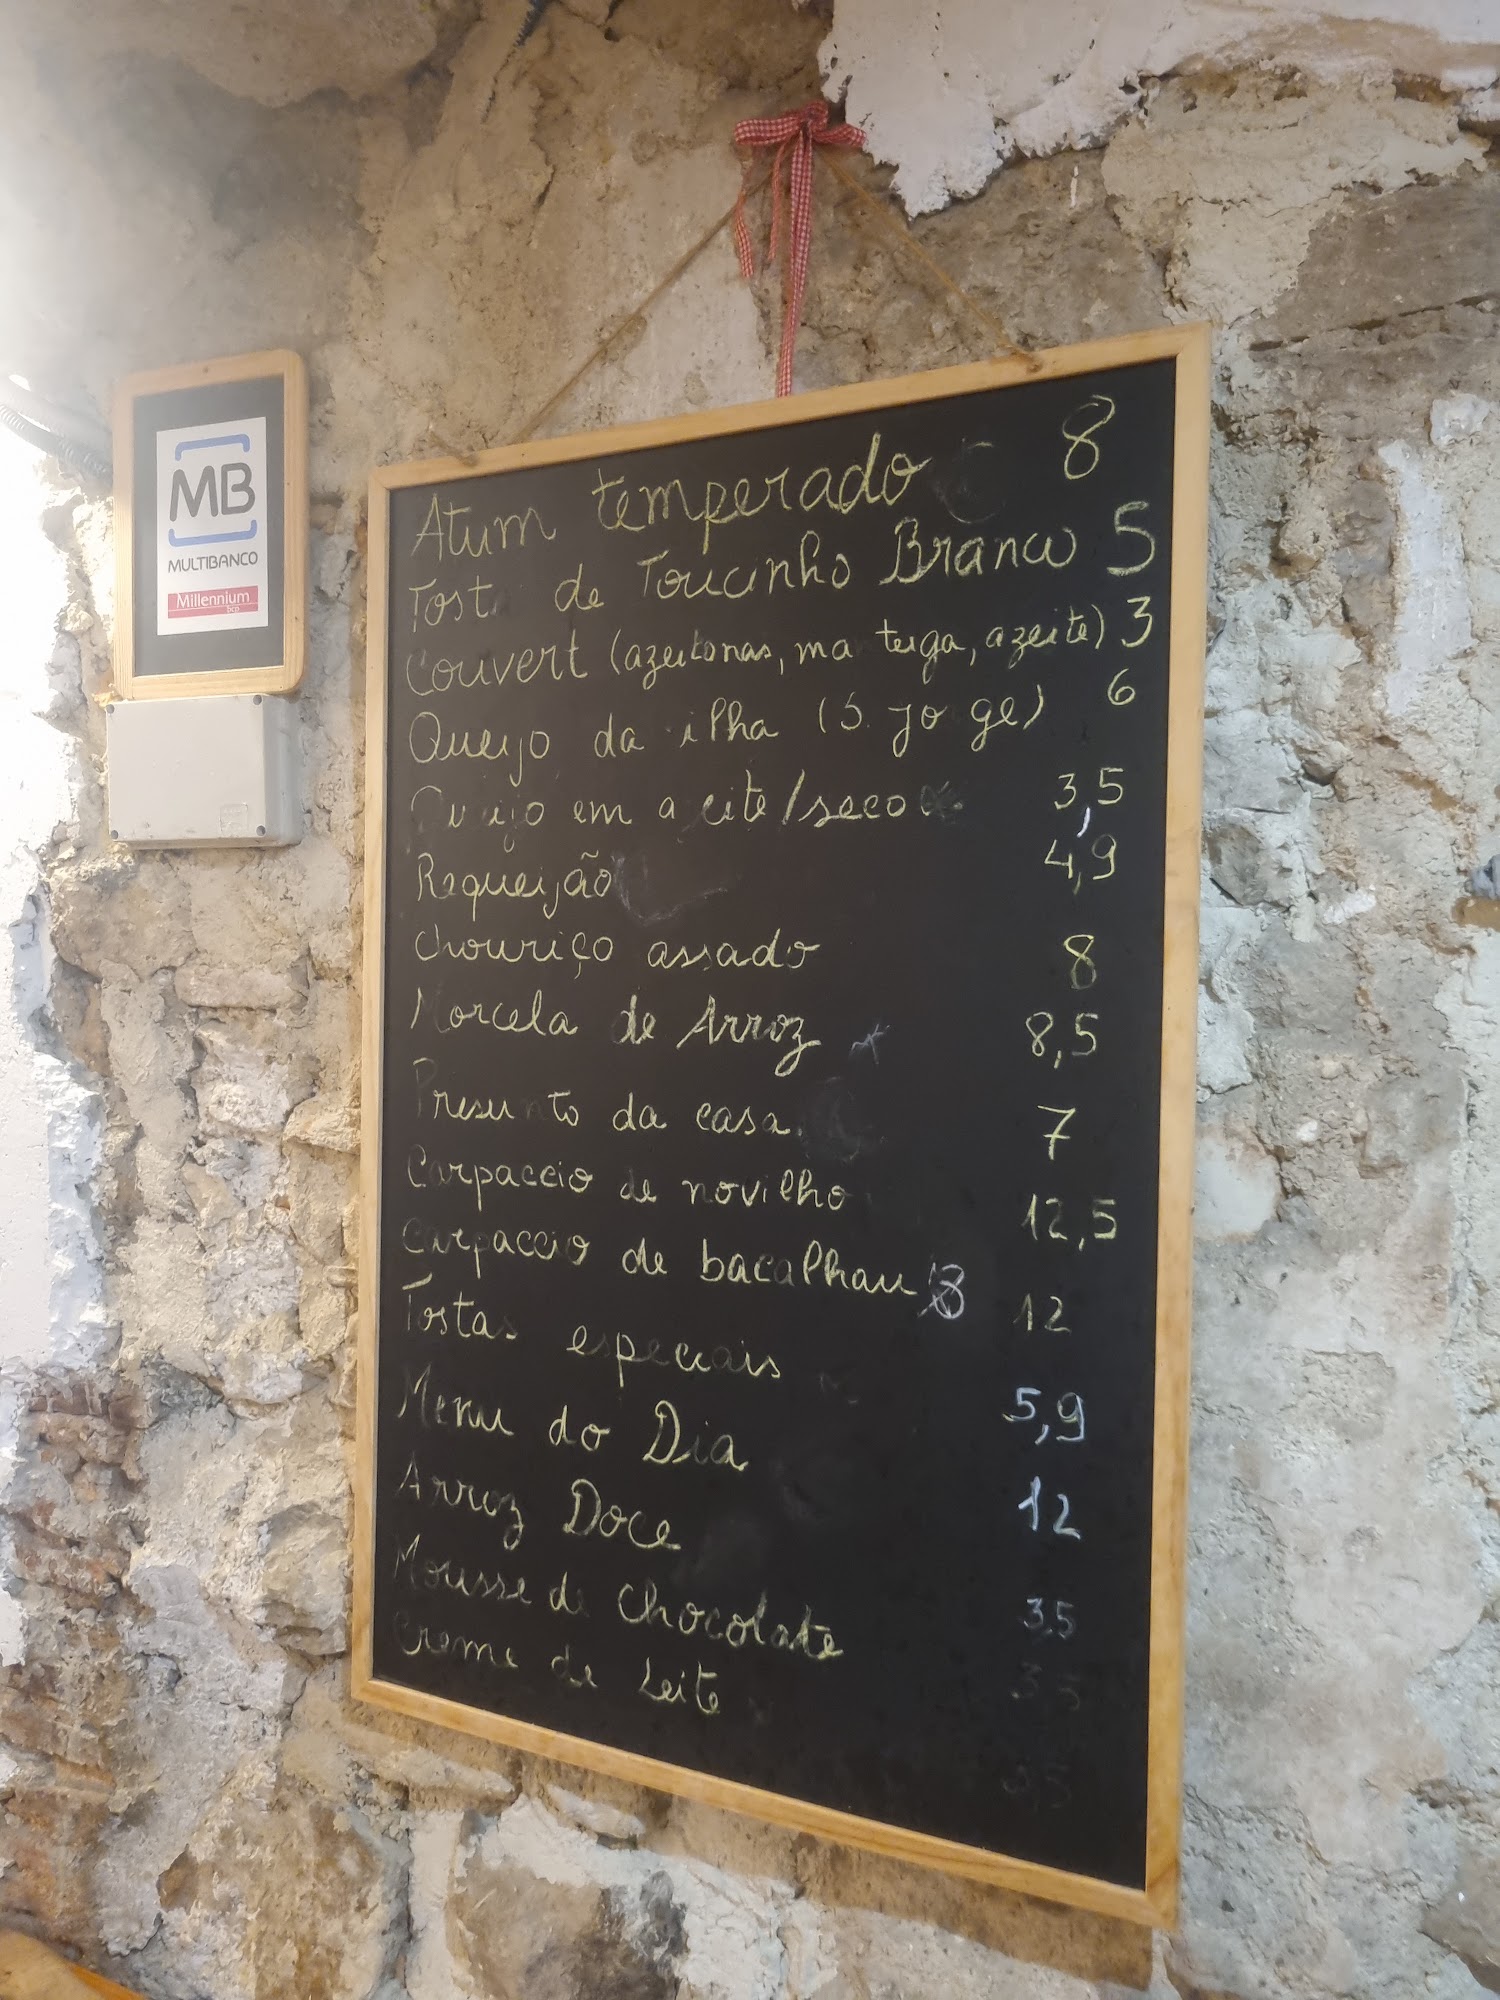 MB
MULTIBANCO
Millennium
bcp
Atum temperado 8
Tost de Toucinho Branco 5
Couvert (azeitonas, manteiga, azeite) 3
Queijo da ilha (S. Jorge) 6
Queijo em azeite/seco 3,5
Requeijão 4,9
Chouriço assado 8
Morcela de Arroz 8,5
Presunto da casa 7
Carpaccio de novilho 12,5
Carpaccio de bacalhau 12
Tostas especiais 5,9
Menu do Dia 12
Arroz Doce 3,5
Mousse de Chocolate 3,5
Creme de Leite